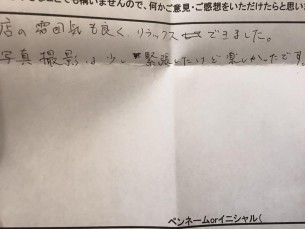 とでも構いませんので、何かご意見・ご感想をいただけたらと思い
店の雰囲気も良く、リラックスできました。
写真撮影は少し緊張したけど楽しかったです。
ペンネームorイニシャル(